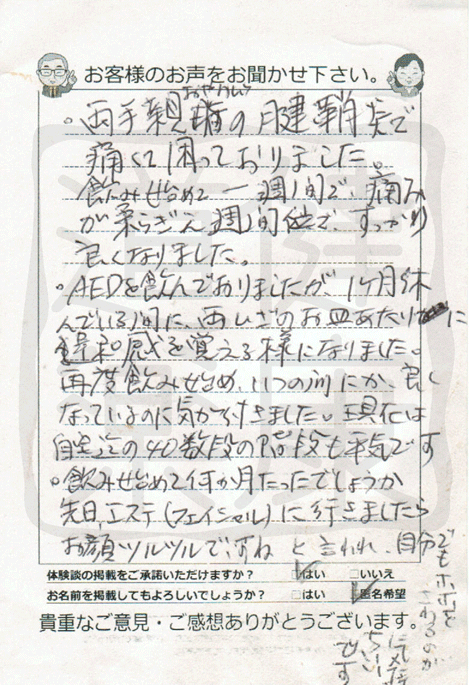 お客様のお声をお聞かせ下さい。
おやゆび
。両手親指の腱鞘炎で
痛くて困っておりました。
飲み始めて一週間で、痛み
が柔らぎ二週間位で、すっかり
良くなりました。
。AEDを飲んでおりましたが1ヶ月休
んでいる間に、両ひざのお皿あたりに
違和感を覚える様になりました。
再度飲み始め、いつの間にか、良く
なっているのに気が付きました。現在は
自宅迄の40数段の階段も平気です
。飲み始めて何か月たったでしょうか
先日、エステ(フェイシャル)に行きましたら
お顔ツルツルですねと言われ、自分
でもホホを
さわるのが
気持
ちいい
です
体験談の掲載をご承諾いただけますか? はい いいえ
お名前を掲載してもよろしいでしょうか? はい 匿名希望
貴重なご意見・ご感想ありがとうございます。